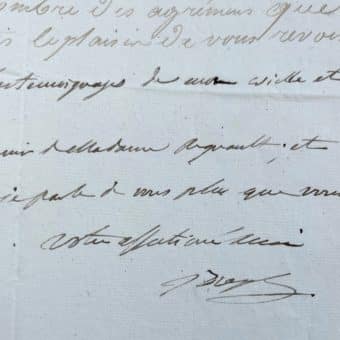 ombre des agrémens que
le plaisir de vous revoi
temoignages de mon zèle et
de Madame Regnault. et
parle de vous plus que vous
votre affectioné